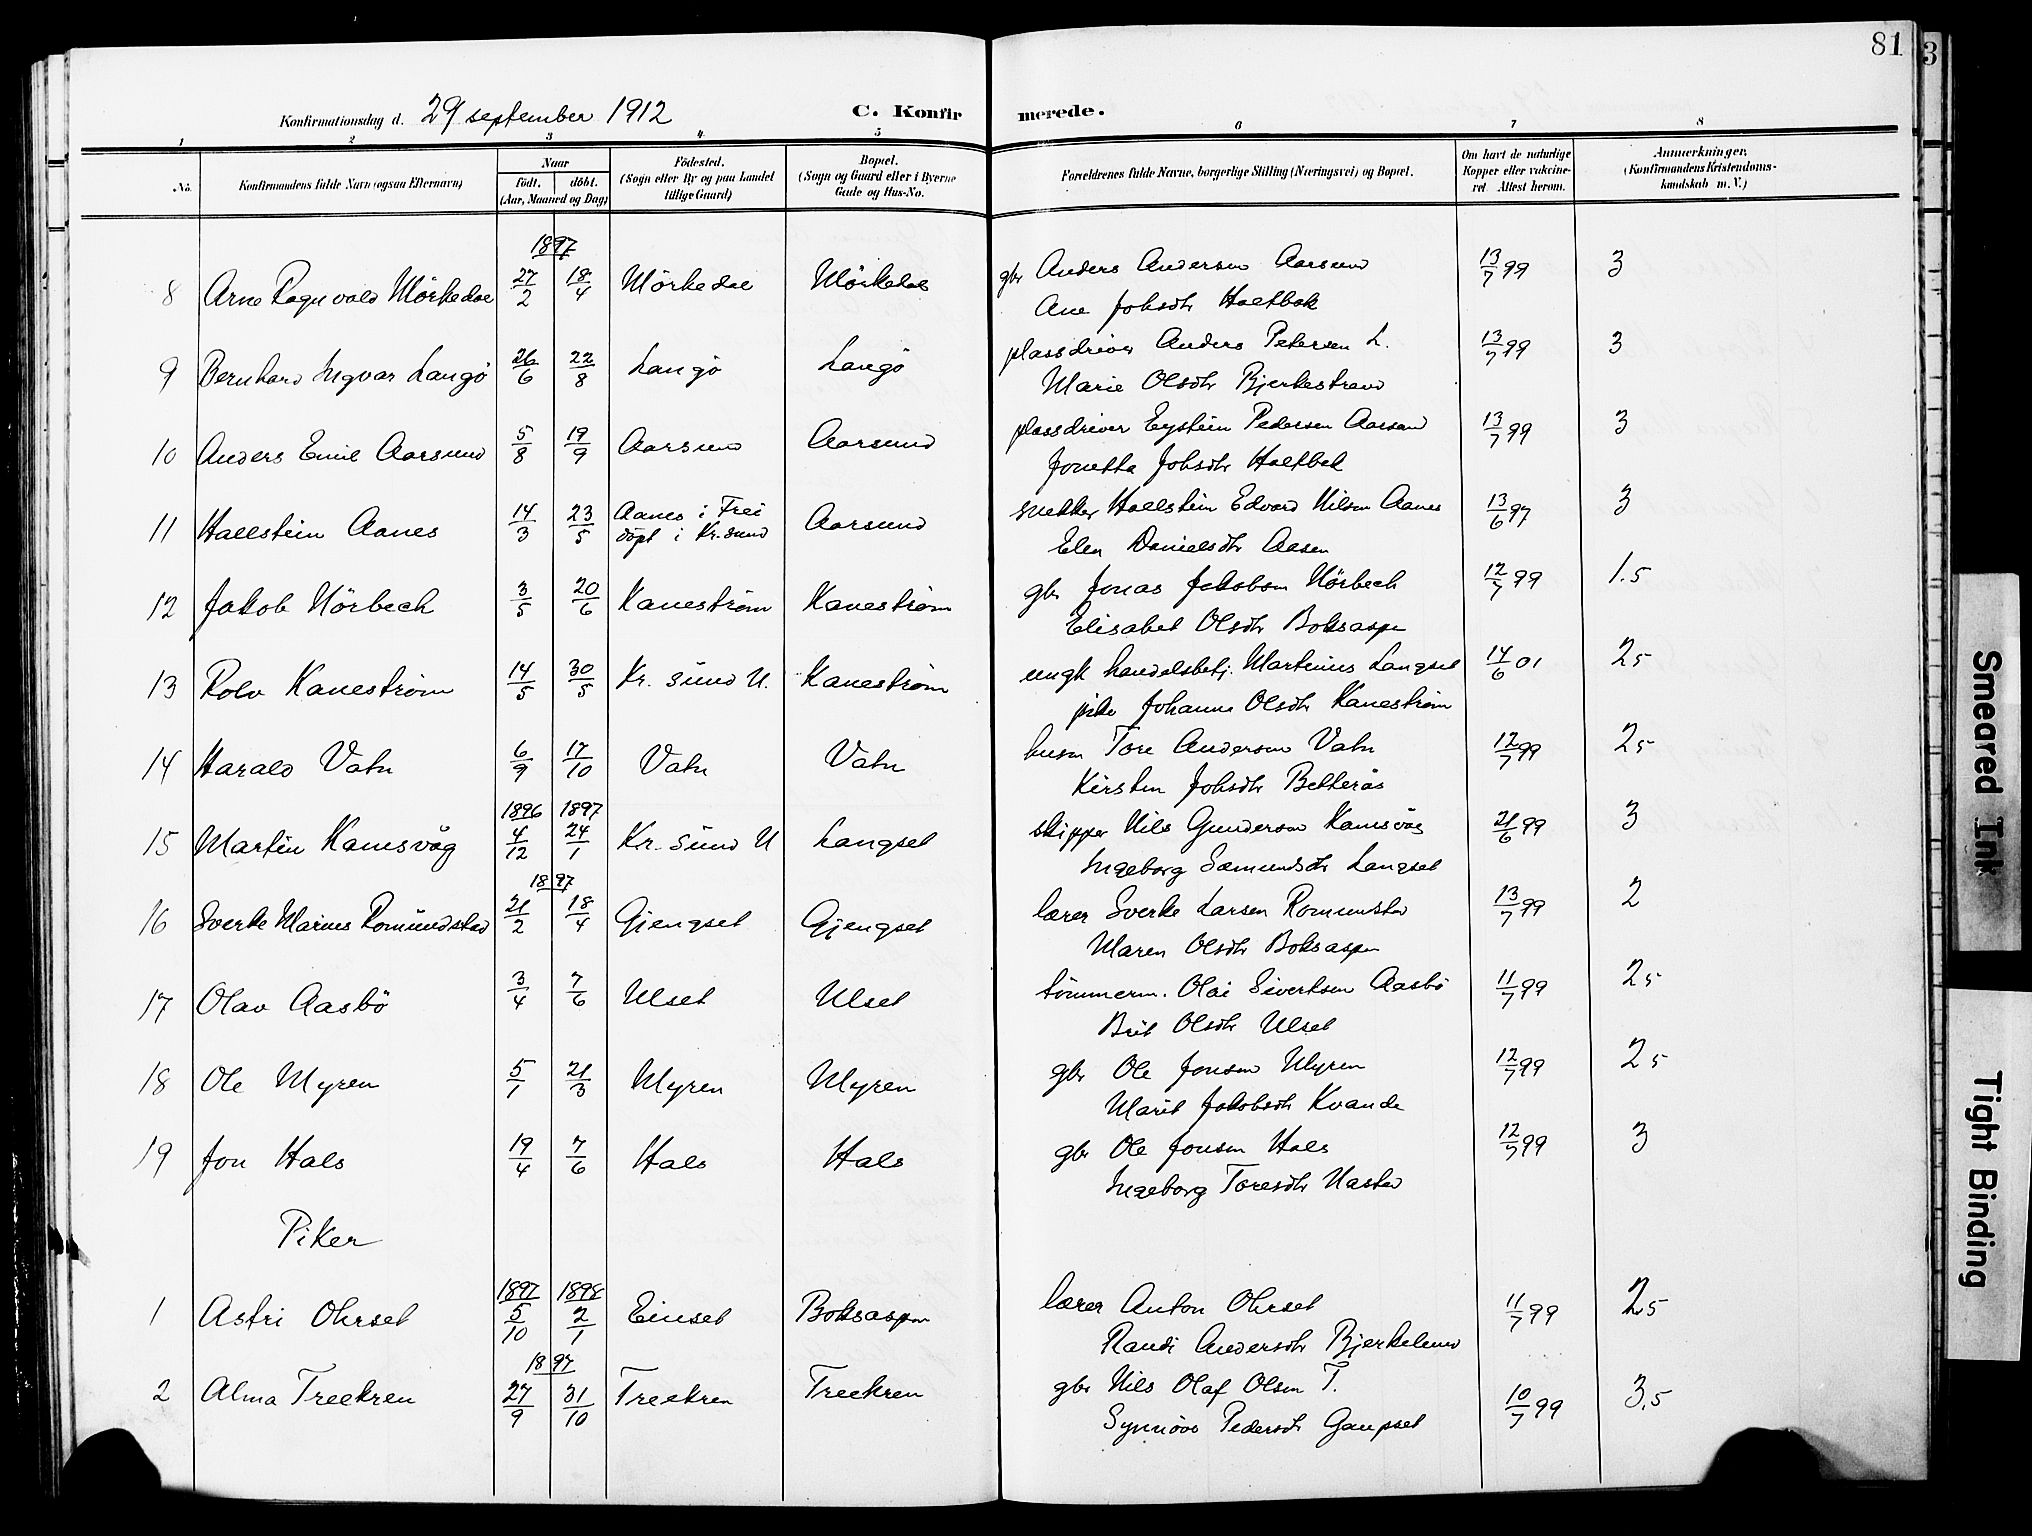 81
3
Konfirmationsdag d. 29 september 1912 C. Konfirmerede.
1 2 3 4 5 6 7 8
No. Konfirmandens fulde Navn (ogsaa Efternavn) Naar födt. döbt. (Aar, Maaned og Dag) Födested. (Sogn eller By og paa Landet tillige Gaard) Bopæl. (Sogn og Gaard eller i Byerne Gade og Hus-No. Forældrenes fulde Navne, borgerlige Stilling (Næringsvei) og Bopæl. Om havt de naturlige Kopper eller vakcineret Attest herom. Anmærkninger. (Konfirmandens Kristendomskundskab m. V.)
1897
8 Arne Ragnvald Mörkedal 27/2 18/4 Mörkedal Mörkedal gbr Anders Andersen Aarsund 13/7 99 3
Ane Johsdtr Holtbak
9 Bernhard Ingvar Langö 26/6 22/8 Langö Langö plassdriver Anders Petersen L. 13/7 99 3
Marie Olsdtr Bjerkestrand
10 Anders Emil Aarsund 5/8 19/9 Aarsund Aarsund plassdriver Eystein Pedersen Aarsund 13/7 99 3
Jonetta Johsdtr Holtbak
11 Hallstein Aanes 14/3 23/5 Aanes i Frei Aarsund snekker Hallstein Edvard Nilsen Aanes 13/6 97 3
döpt i Kr.sund
Elen Danielsdtr Aasen
12 Jakob Nörbech 3/5 20/6 Kaneström Kaneström gbr Jonas Jakobsen Nörbech 12/7 99 1.5
Elisabet Olsdtr Boksaspn
13 Rolv Kaneström 14/5 30/5 Kr. sund N. Kaneström ungk handelsbetj. Martinus Langset 14/6 01 2 5
pike Johanne Olsdtr Kaneström
14 Harald Vatn 6/9 17/10 Vatn Vatn husm Tore Andersen Vatn 12/7 99 2 5
Kirsten Johsdtr Betteräs
1896 1897
15 Martin Kamsvåg 4/12 24/1 Kr. sund N Langset skipper Nils Gundersen Kamsvåg 21/6 99 3
Ingeborg Samundsdtr Langset
1897
16 Sverke Marius Romundstad 21/2 18/4 Gjengset Gjengset lærer Sverke Larsen Romundstad 13/7 99 2
Maren Olsdtr Boksaspn
17 Olav Aasbö 3/4 7/6 Ulset Ulset tömmerm. Olai Sivertsen Aasbö 11/7 99 2 5
Brit Olsdtr Ulset
18 Ole Myren 5/1 21/3 Myren Myren gbr Ole Jonsen Myren 12/7 99 2 5
Marit Jakobsdtr Kvande
19 Jon Hals 19/4 7/6 Hals Hals gbr Ole Jonsen Hals 12/7 99 3
Ingeborg Toresdtr Nastad
Piker
1897 1898
1 Astri Ohrset 5/10 2/1 Einset Boksaspn lærer Anton Ohrset 11/7 99 2 5
Randi Andersdtr Bjerkelund
1897
2 Alma Treekren 27/9 31/10 Treekren Treekren gbr Nils Olaf Olsen T. 10/7 99 3,5
Synnöve Pedersdtr Gaupset
Smeared Ink
Tight Binding